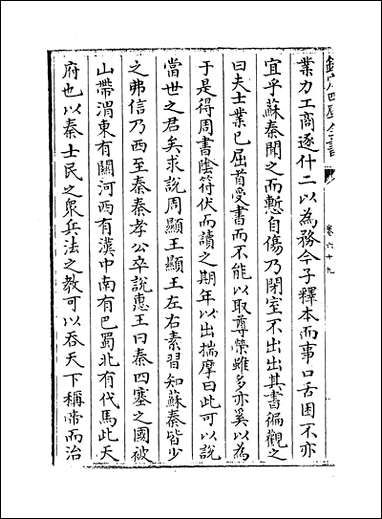 欽定四庫全書
卷六十九
業力工商逐什二以為務今子釋本而事口舌困不亦
宜乎蘇秦聞之而慙自傷乃閉室不出出其書徧觀之
曰夫士業已屈首受書而不能以取尊榮雖多亦奚以為
于是得周書陰符伏而讀之期年以出揣摩曰此可以說
當世之君矣求說周顯王顯王左右素習知蘇秦皆少
之弗信乃西至秦秦孝公卒說惠王曰秦四塞之國被
山帶渭東有關河西有漢中南有巴蜀北有代馬此天
府也以秦士民之衆兵法之教可以吞天下稱帝而治